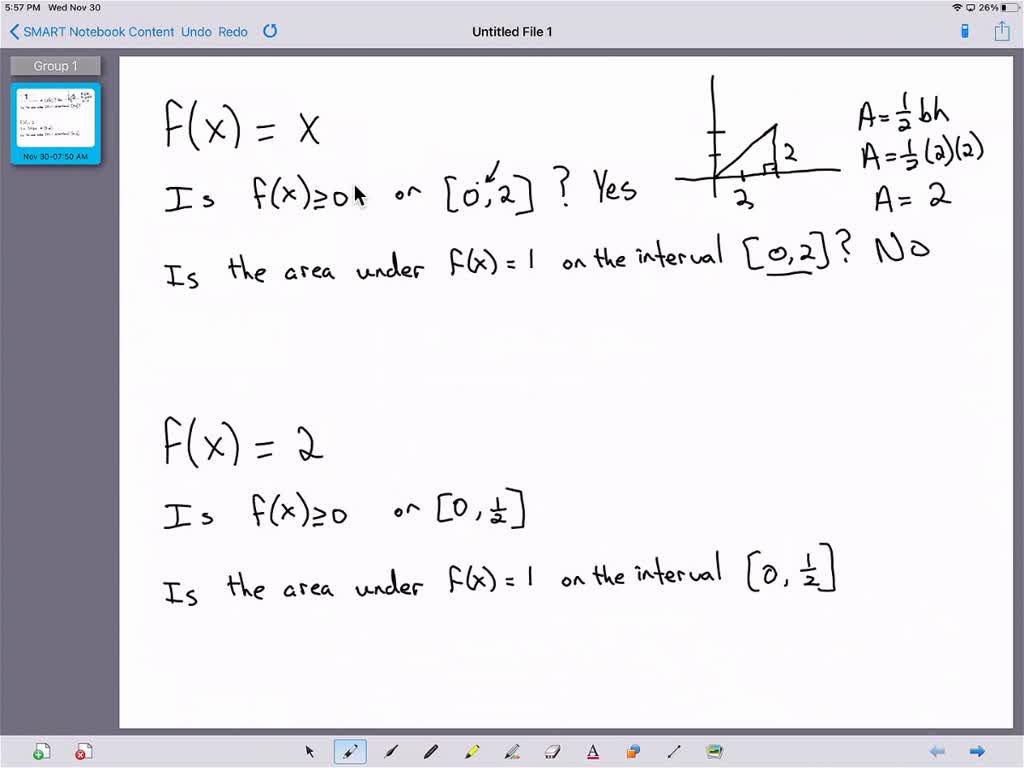 5:57 PM Wed Nov 30
26%
SMART Notebook Content Undo Redo
Untitled File 1
Group 1
Nov 30-07:50 AM
f(x) = x
Is f(x)≥0 on [0,2]? Yes
Is the area under f(x) = 1 on the interval [0,2]? No
2
2
A = 1/2 bh
A = 1/2 (2)(2)
A = 2
f(x) = 2
Is f(x)≥0 on [0, 1/2]
Is the area under f(x) = 1 on the interval [0, 1/2]
A